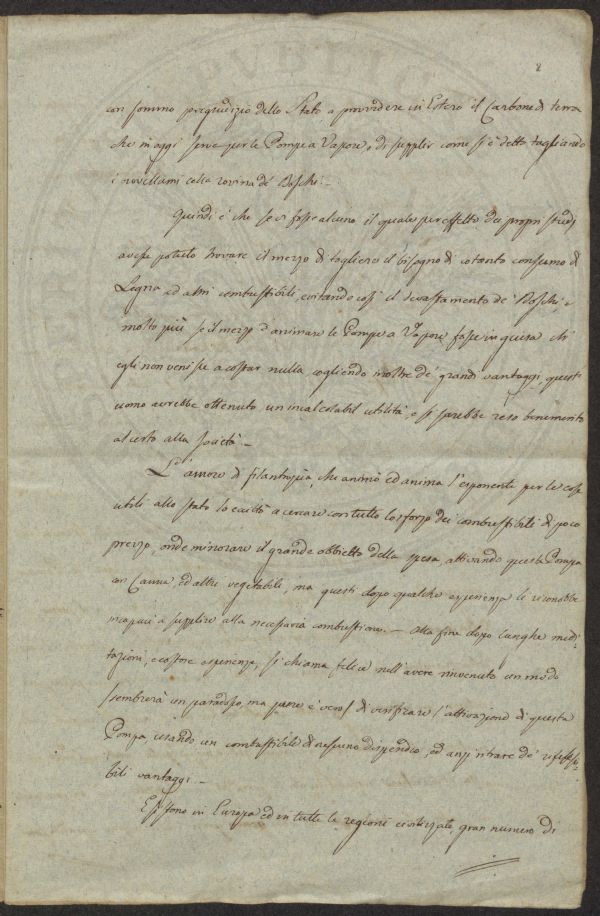 2
con sommo pregiudizio dello Stato a provvedere in Estero il Carbone di terra
che in oggi serve per le Pompe a Vapore, o di supplir come si è detto tagliando
i novellami colla rovina de' Boschi.–
Quindi è che se vi fosse alcuno il quale per effetto dei propri studj
avesse potuto trovare il mezzo di togliere il bisogno di cotanto consumo di
Legna ad altri combustibili, evitando così il devastamento de' Boschi, e
molto più se il mezzo d'animare le Pompe a Vapore fosse in guisa che
egli non venisse a costar nulla, cogliendo inoltre de' grandi vantaggi, questi
uomo avrebbe ottenuto un incalcolabil utilità, e si sarebbe reso benemerito
al certo alla società.–
L'amore di filantropia, che animò ed anima l'esponente per le cose
utili allo stato lo eccitò a cercare con tutto lo sforzo dei combustibili di poco
prezzo, onde minorare il grande obbietto della spesa, attivando questa Pompa
con Canna, ed altre vegetabile, ma questi dopo qualche esperienza li riconobbe
incapaci a supplire alla necessaria combustione.– Alla fine dopo lunghe medi-
tazioni, e costose esperienze, si chiama felice nell'avere rinvenuto un modo
(sembrerà un paradosso, ma pure è vero) di verificare l'attivazione di questa
Pompa, usando un combustibile di nessuno dispendio, ed anzi ritrare de'
bili vantaggi.–
Esistono in Europa ed in tutte le regioni civilizzate, gran numero di